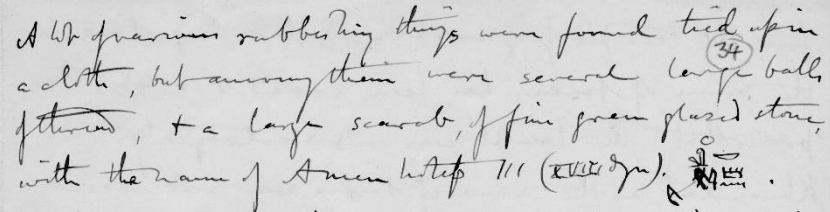 A lot of various rubbishing things were found tied up in
(34)
a cloth, but among them were several large balls
of thread, & a large scarab, of fine green glazed stone,
with the name of Amen hotep III (XVIII dyn).